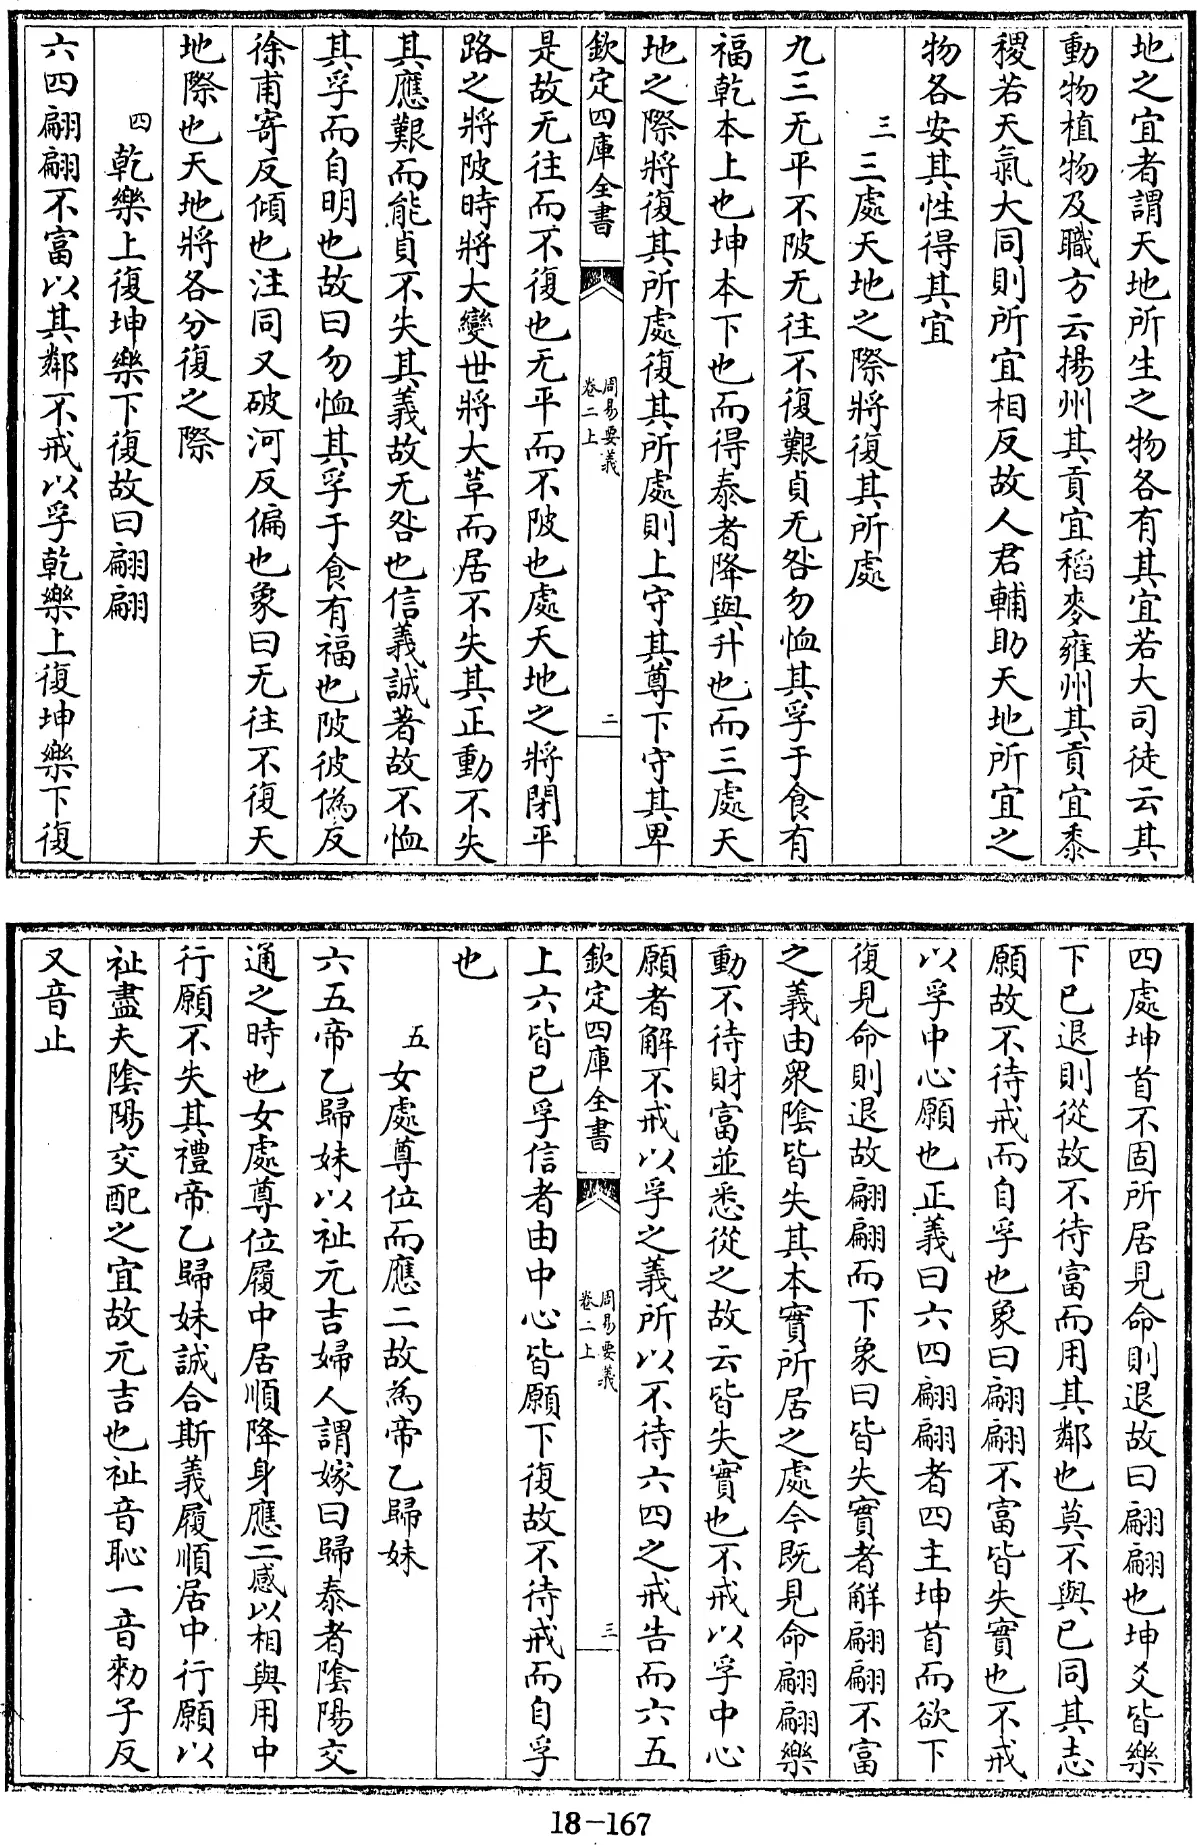 地之宜者謂天地所生之物各有其宜若大司徒云其
動物植物及職方云揚州其貢宜稻麥雍州其貢宜黍
稷若天氣大同則所宜相反故人君輔助天地所宜之
物各安其性得其宜
三三處天地之際將復其所處
九三无平不陂无往不復艱貞无咎勿恤其孚于食有
福乾本上也坤本下也而得泰者降與升也而三處天
地之際將復其所處復其所處則上守其尊下守其卑
欽定四庫全書
周易要義
卷二上
二
是故无往而不復也无平而不陂也處天地之將閉平
路之將陂時將大變世將大革而居不失其正動不失
其應艱而能貞不失其義故无咎也信義誠著故不恤
其孚而自明也故曰勿恤其孚于食有福也陂彼偽反
徐甫寄反傾也注同又破河反偏也象曰无往不復天
地際也天地將各分復之際
四乾樂上復坤樂下復故曰翩翩
六四翩翩不富以其鄰不戒以孚乾樂上復坤樂下復
四處坤首不固所居見命則退故曰翩翩也坤爻皆樂
下已退則從故不待富而用其鄰也莫不與已同其志
願故不待戒而自孚也象曰翩翩不富皆失實也不戒
以孚中心願也正義曰六四翩翩者四主坤首而欲下
復見命則退故翩翩而下象曰皆失實者解翩翩不富
之義由衆陰皆失其本實所居之處今既見命翩翩樂
動不待財富並悉從之故云皆失實也不戒以孚中心
願者解不戒以孚之義所以不待六四之戒告而六五
欽定四庫全書
周易要義
卷二上
三
上六皆已孚信者由中心皆願下復故不待戒而自孚
也
五女處尊位而應二故為帝乙歸妹
六五帝乙歸妹以祉元吉婦人謂嫁曰歸泰者陰陽交
通之時也女處尊位履中居順降身應二感以相與用中
行願不失其禮帝乙歸妹誠合斯義履順居中行願以
祉盡夫陰陽交配之宜故元吉也祉音恥一音勑子反
又音止
18-167